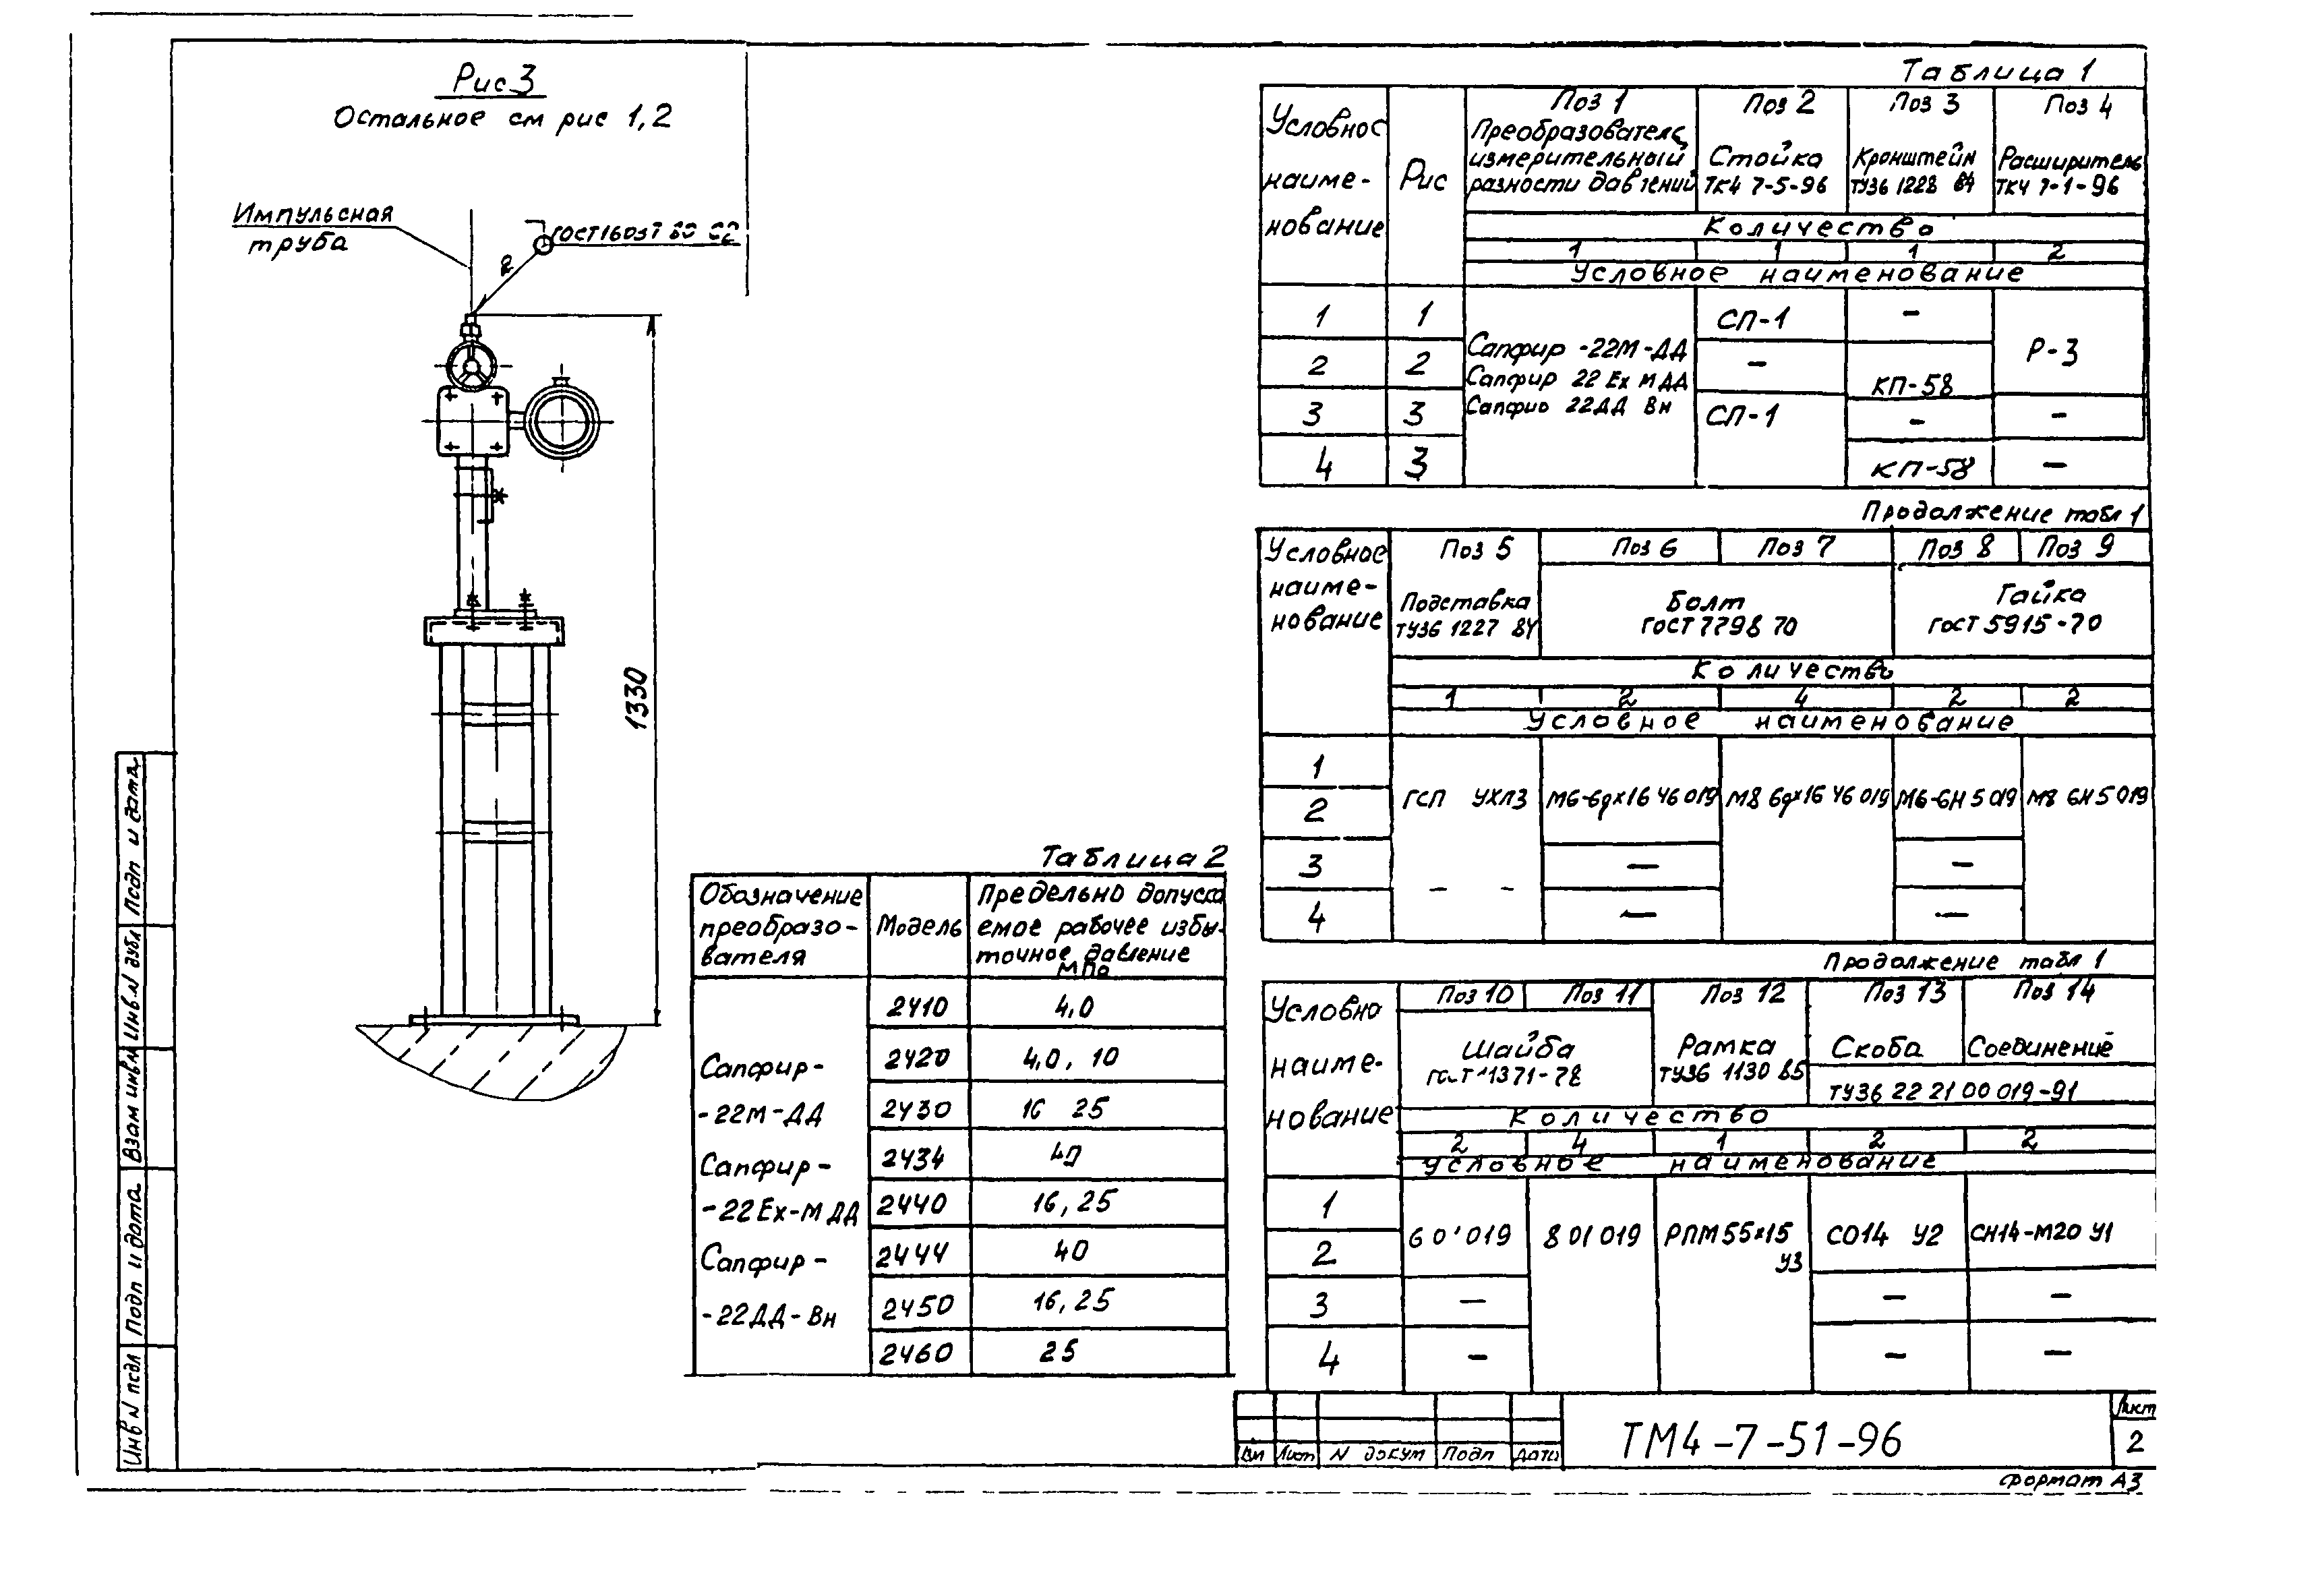 Рис 3
Остальное см рис 1,2
Импульсная
труба
2
1330
Таблица 1
Условное
наиме-
нование
Рис
Поз 1
Преобразователь
измерительный
разности давлений
Поз 2
Стойка
ТК4 7-5-96
Поз 3
Кронштейн
ТУ36 1228 84
Поз 4
Расширитель
ТК4 7-1-96
Количество
1 1 1 2
Условное наименование
1 1 СП-1 —
2 2 — КП-58
3 3 СП-1 — —
4 3 КП-58 —
Сапфир -22М-ДД
Сапфир 22 Ех М ДД
Сапфир 22ДД Вн
Р-3
Продолжение табл 1
Условное
наиме-
нование
Поз 5
Подставка
ТУ36 1227 84
Поз 6 Поз 7
Болт
ГОСТ 7798 70
Поз 8 Поз 9
Гайка
ГОСТ 5915-70
Количество
1 2 4 2 2
Условное наименование
1
2
ГСП УХЛ3 М6-6gх16 46 019 М8 6gх16 46 019 М6-6Н 5 019 М8 6Н 5 019
3 — —
- -
4 — —
Таблица 2
Обозначение
преобразо-
вателя
Модель
Предельно допуска
емое рабочее избы-
точное давление
МПа
2410 4,0
2420 4,0, 10
2430 16 25
2434 40
2440 16, 25
2444 40
2450 16, 25
2460 25
Сапфир-
-22М-ДД
Сапфир-
-22Ех-М ДД
Сапфир-
-22ДД-Вн
Продолжение табл 1
Условно
наиме-
нование
Поз 10 Поз 11
Шайба
Поз 12
Рамка
ТУ36 1130 85
Поз 13
Скоба
Поз 14
Соединение
ТУ36 22 21 00 019-91
Количество
2 4 1 2 2
Условное наименование
1
2
8 01 019 РПМ 55х15
У3
СО14 У2 СН14-М20 У1
3 — — —
4 — — —
Инв N подл
Подп и дата
Взам инв N
Инв N дубл
Подп и дата
Лист N докум Подп Дата
ТМ4-7-51-96
Лист
2
Формат А3